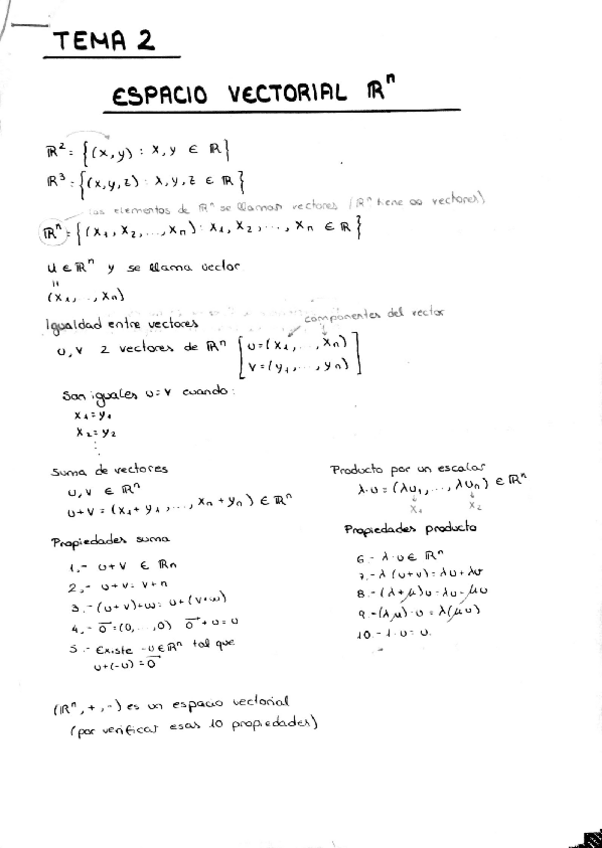 TEMA 2
ESPACIO VECTORIAL ℝⁿ
ℝ² = {(x,y) : x,y ∈ ℝ}
ℝ³ = {(x,y,z) : x,y,z ∈ ℝ}
los elementos de ℝⁿ se llaman vectores (ℝⁿ tiene ∞ vectores)
ℝⁿ = {(x₁, x₂, ..., xₙ) : x₁, x₂, ..., xₙ ∈ ℝ}
u ∈ ℝⁿ y se llama vector
=
(x₁, .., xₙ)
Igualdad entre vectores
componentes del vector
u, v 2 vectores de ℝⁿ [u = (x₁, ..., xₙ)
v = (y₁, ..., yₙ)]
Son iguales u = v cuando:
x₁ = y₁
x₂ = y₂
⋮
Suma de vectores
u, v ∈ ℝⁿ
u+v = (x₁+y₁, ..., xₙ+yₙ) ∈ ℝⁿ
Propiedades suma
1.- u+v ∈ ℝn
2.- u+v = v+n
3.- (u+v)+w = u+(v+w)
4.- 0⃗ = (0, ..., 0) 0⃗ + u = u
5.- Existe -u ∈ ℝⁿ tal que
u+(-u) = 0⃗
Producto por un escalar
λ·u = (λu₁, ..., λuₙ) ∈ ℝⁿ
x₁ x₂
Propiedades producto
6.- λ·u ∈ ℝⁿ
7.- λ(u+v) = λu + λv
8.- (λ+μ)u = λu - μu
9.- (λμ)·u = λ(μu)
10.- 1·u = u.
(ℝⁿ, +, ·) es un espacio vectorial
(por verificar esas 10 propiedades)